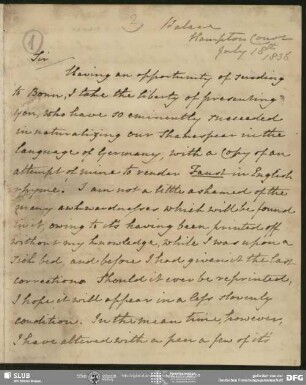 1
Palace
Hampton Court
July 18th
1836
Sir
Having an opportunity of sending
to Bonn, I take the liberty of presenting
you, who have so eminently succeeded
in naturalizing our Shakespear in the
language of Germany, with a copy of an
attempt of mine to render Faust in English
rhyme. I am not a little ashamed of the
many awkwardnesses which will be found
in it, owing to it's having been printed off
without my knowledge, while I was upon a
sick bed, and before I had given it the last
corrections. Should it ever be reprinted,
I hope it will appear in a less slovenly
condition. In the mean time, however,
I have altered with a pen a few of it's
SLUB
DFG